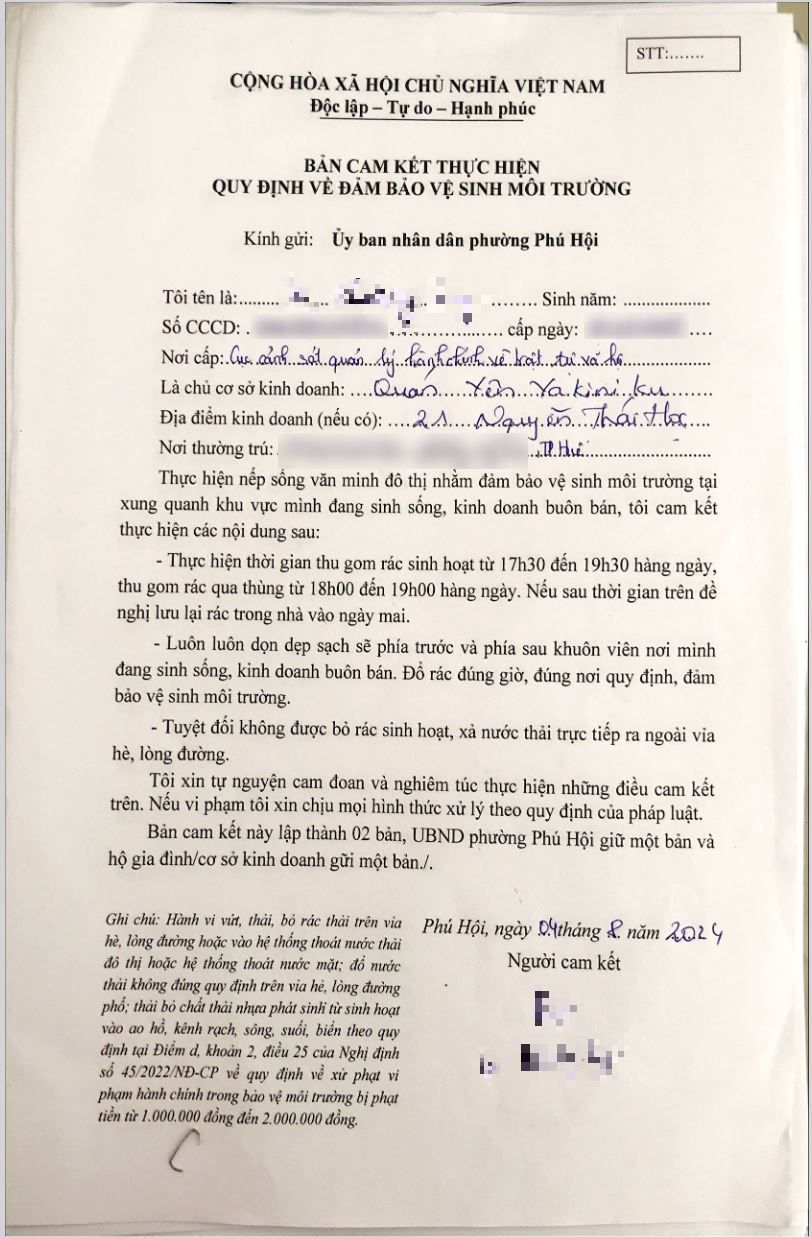 STT:.......
CỘNG HÒA XÃ HỘI CHỦ NGHĨA VIỆT NAM
Độc lập – Tự do – Hạnh phúc
BẢN CAM KẾT THỰC HIỆN
QUY ĐỊNH VỀ ĐẢM BẢO VỆ SINH MÔI TRƯỜNG
Kính gửi: Ủy ban nhân dân phường Phú Hội
Tôi tên là:......... ........ Sinh năm: ...................
Số CCCD: . ................... cấp ngày: ....
Nơi cấp: Cục cảnh sát quản lý hành chính về trật tự xã hội
Là chủ cơ sở kinh doanh: Quán Yên Yakiniku
Địa điểm kinh doanh (nếu có): 21 Nguyễn Thái Học
Nơi thường trú: TP Huế
Thực hiện nếp sống văn minh đô thị nhằm đảm bảo vệ sinh môi trường tại
xung quanh khu vực mình đang sinh sống, kinh doanh buôn bán, tôi cam kết
thực hiện các nội dung sau:
- Thực hiện thời gian thu gom rác sinh hoạt từ 17h30 đến 19h30 hàng ngày,
thu gom rác qua thùng từ 18h00 đến 19h00 hàng ngày. Nếu sau thời gian trên đề
nghị lưu lại rác trong nhà vào ngày mai.
- Luôn luôn dọn dẹp sạch sẽ phía trước và phía sau khuôn viên nơi mình
đang sinh sống, kinh doanh buôn bán. Đổ rác đúng giờ, đúng nơi quy định, đảm
bảo vệ sinh môi trường.
- Tuyệt đối không được bỏ rác sinh hoạt, xả nước thải trực tiếp ra ngoài vỉa
hè, lòng đường.
Tôi xin tự nguyện cam đoan và nghiêm túc thực hiện những điều cam kết
trên. Nếu vi phạm tôi xin chịu mọi hình thức xử lý theo quy định của pháp luật.
Bản cam kết này lập thành 02 bản, UBND phường Phú Hội giữ một bản và
hộ gia đình/cơ sở kinh doanh gữi một bản./.
Ghi chú: Hành vi vứt, thải, bỏ rác thải trên vỉa
hè, lòng đường hoặc vào hệ thống thoát nước thải
đô thị hoặc hệ thống thoát nước mặt; đổ nước
thải không đúng quy định trên vỉa hè, lòng đường
phố; thải bỏ chất thải nhựa phát sinh từ sinh hoạt
vào ao hồ, kênh rạch, sông, suối, biển theo quy
định tại Điểm d, khoản 2, điều 25 của Nghị định
số 45/2022/NĐ-CP về quy định về xử phạt vi
phạm hành chính trong bảo vệ môi trường bị phạt
tiền từ 1.000.000 đồng đến 2.000.000 đồng.
Phú Hội, ngày 04 tháng 8 năm 2024
Người cam kết